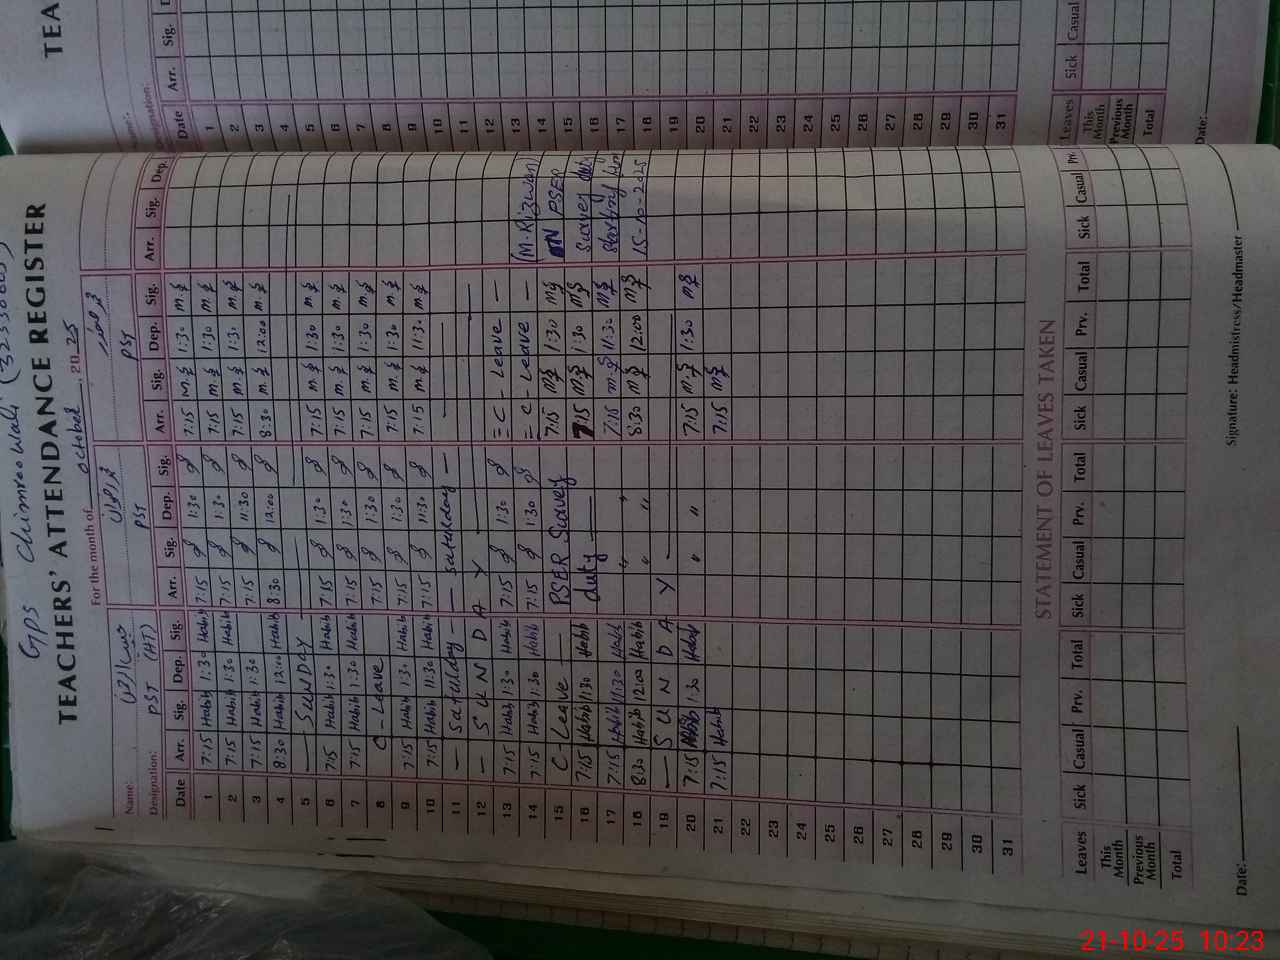 GPS Chimrewali
TEACHERS' ATTENDANCE REGISTER
For the month of October, 2025
Name:
Designation: PST (HT) PST PST
Date Arr. Sig. Dep. Sig. Arr. Sig. Dep. Sig. Arr. Sig. Dep. Sig. Arr. Sig. Dep.
1 7:15 Habib 1:30 Habib 7:15 1:30 7:15 M.S 1:30 M.S
2 7:15 Habib 1:30 Habib 7:15 1:30 7:15 M.S 1:30 M.S
3 7:15 Habib 1:30 Habib 7:15 11:30 7:15 M.S 1:30 M.S
4 8:30 Habib 12:00 Habib 8:30 12:00 8:30 M.S 12:00 M.S
5 — SUNDAY —
6 7:15 Habib 1:30 Habib 7:15 1:30 7:15 M.S 1:30 M.S
7 7:15 Habib 1:30 Habib 7:15 1:30 7:15 M.S 1:30 M.S
8 C-Leave 7:15 1:30 7:15 M.S 1:30 M.S
9 7:15 Habib 1:30 Habib 7:15 1:30 7:15 M.S 1:30 M.S
10 7:15 Habib 11:30 Habib 7:15 11:30 7:15 M.S 11:30 M.S
11 — Saturday — — saturday —
12 — S U N D A Y —
13 7:15 Habib 1:30 Habib 7:15 1:30 = C-Leave —
14 7:15 Habib 1:30 Habib 7:15 1:30 = C-Leave — (M.Rizwan)
15 C-Leave — PSER Survey 7:15 M.S 1:30 M.S ON PSER
16 7:15 Habib 1:30 Habib duty — 7:15 M.S 1:30 M.S Survey duty
17 7:15 Habib 11:30 Habib " " 7:15 M.S 11:30 M.S Starting
18 8:30 Habib 12:00 Habib " " 8:30 M.S 12:00 M.S 15-10-2025
19 — S U N D A Y —
20 7:15 Habib 1:30 Habib " " 7:15 M.S 1:30 M.S
21 7:15 Habib 7:15 M.S
22
23
24
25
26
27
28
29
30
31
STATEMENT OF LEAVES TAKEN
Leaves Sick Casual Prv. Total Sick Casual Prv. Total Sick Casual Prv. Total Sick Casual Prv.
This Month
Previous Month
Total
Date: Signature: Headmistress/Headmaster
TEA
Designation:
Date Arr. Sig.
1
2
3
4
5
6
7
8
9
10
11
12
13
14
15
16
17
18
19
20
21
22
23
24
25
26
27
28
29
30
31
Leaves Sick Casual
This Month
Previous Month
Total
Date:
21-10-25 10:23